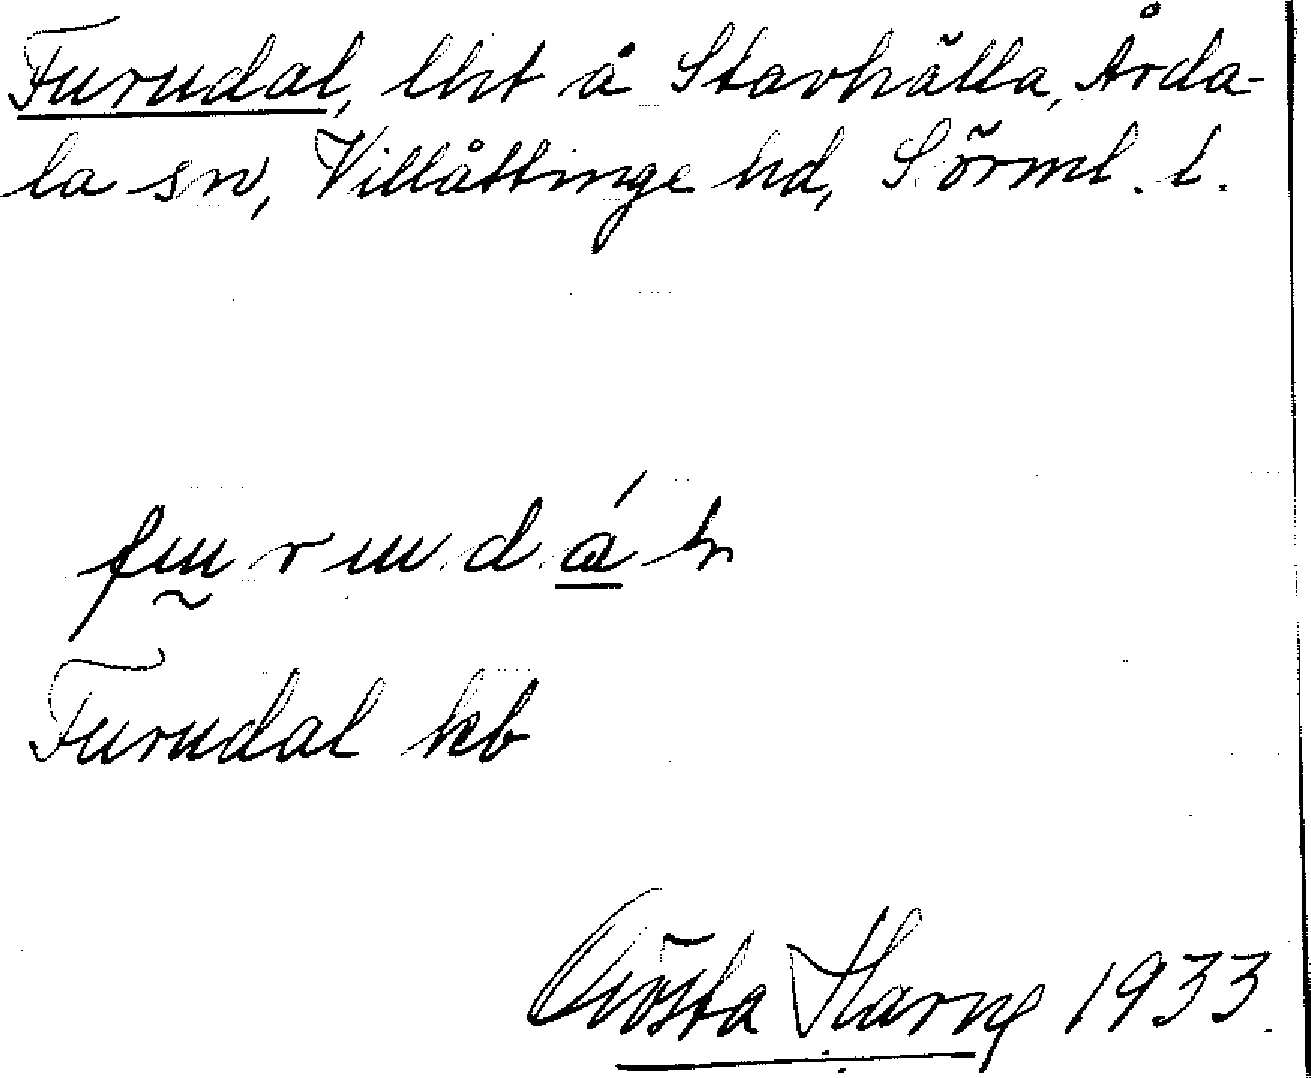 Furudal, lht å Stavhälla, Årda-
la sn, Villåttinge hd, Sörml. l.
Furudal kb
Gösta Harne 1933.